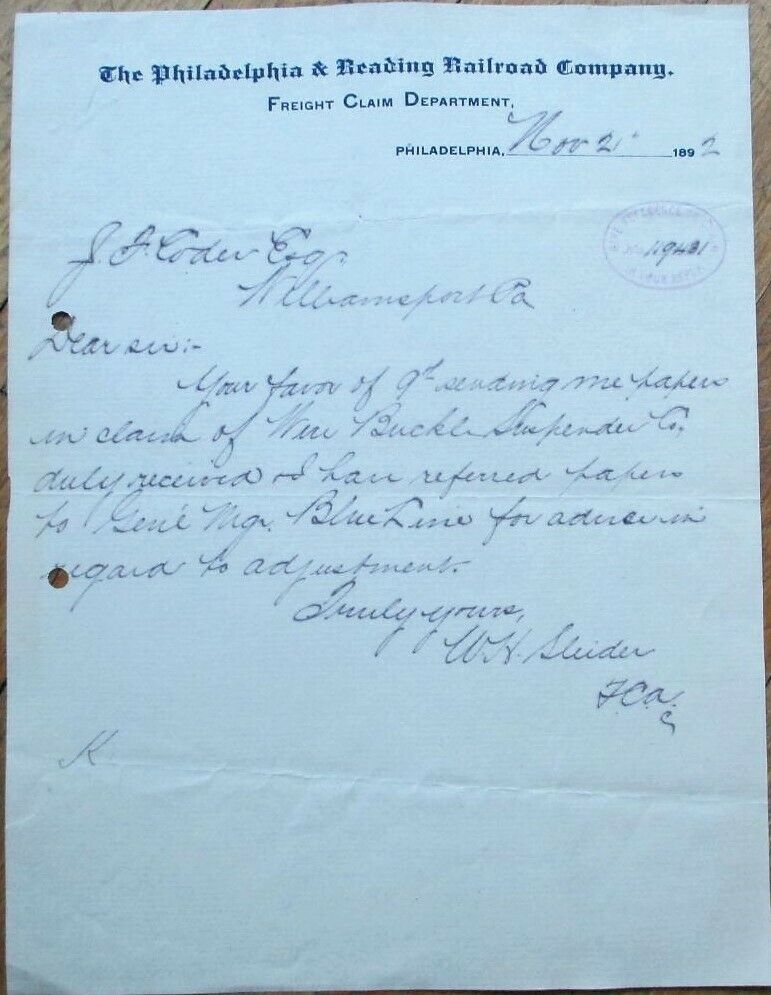 The Philadelphia & Reading Railroad Company.
FREIGHT CLAIM DEPARTMENT,
PHILADELPHIA, Nov 21 1892
J. F. Coder Esq.
Williamsport Pa
119431
Dear sir:-
Your favor of 9th sending me papers
in claim of Wire Buckle Suspender Co,
duly received & I have referred papers
to Gen'l Mgr. Blue Line for advice in
regard to adjustment.
Truly yours,
W. H. Sleider
F.C.A.
K